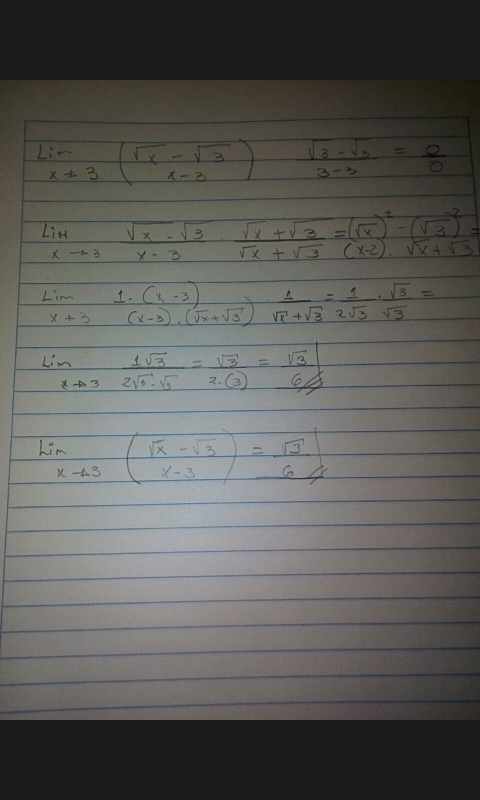 Lim x→3 (√x - √3 / x-3) √3 - √3 / 3-3 = 0/0
Lim x→3 √x - √3 / x - 3 · √x + √3 / √x + √3 = (√x)² - (√3)² / (x-2) · √x + √3 =
Lim x→3 1·(x-3) / (x-3)·(√x+√3) 1 / √x+√3 = 1 / 2√3 · √3 / √3 =
Lim x→3 1√3 / 2√3·√3 = √3 / 2·(3) = √3 / 6
Lim x→3 (√x - √3 / x-3) = √3 / 6